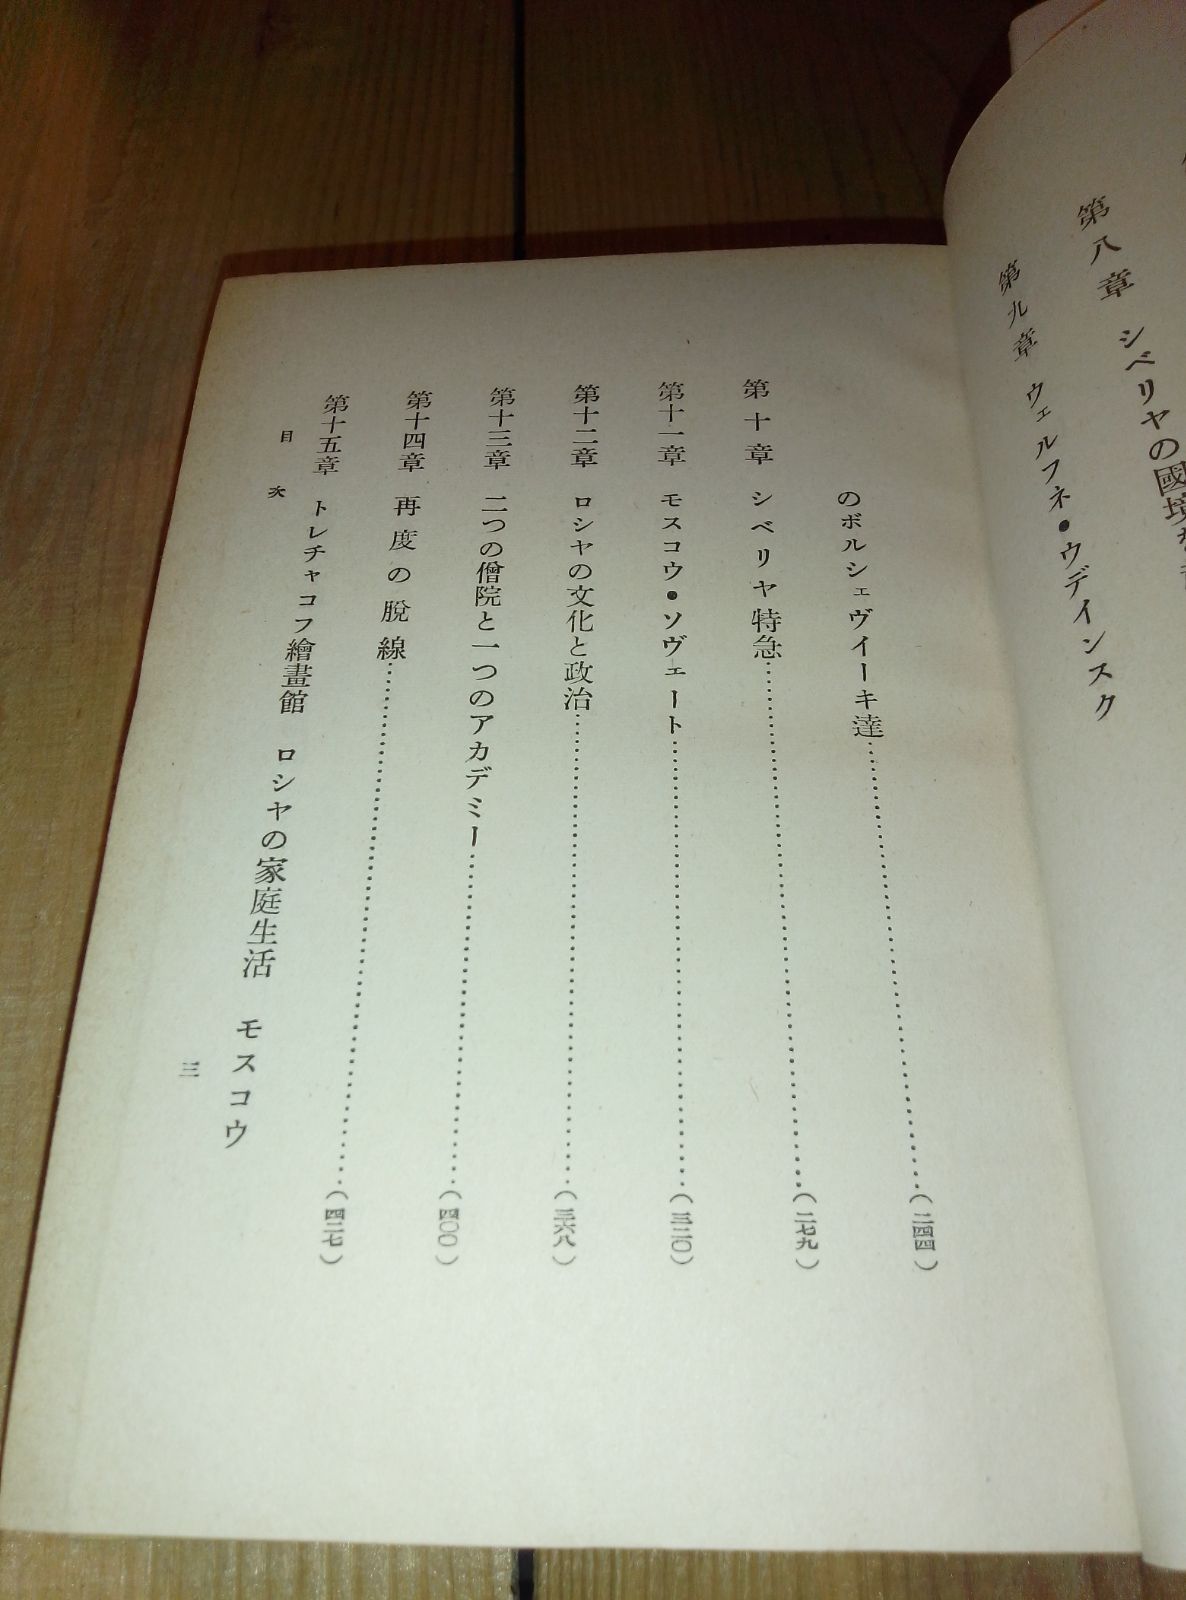 第八章　シベリヤの國境
第九章　ヴェルフネ・ウデインスク
のボルシェヴイーキ達……(二四四)
第十章　シベリヤ特急……(二七九)
第十一章　モスコウ・ソヴェート……(三二〇)
第十二章　ロシヤの文化と政治……(三六八)
第十三章　二つの僧院と一つのアカデミー……(四〇〇)
第十四章　再度の脱線……(四二七)
第十五章　トレチャコフ繪畫館　ロシヤの家庭生活　モスコウ
目次　三